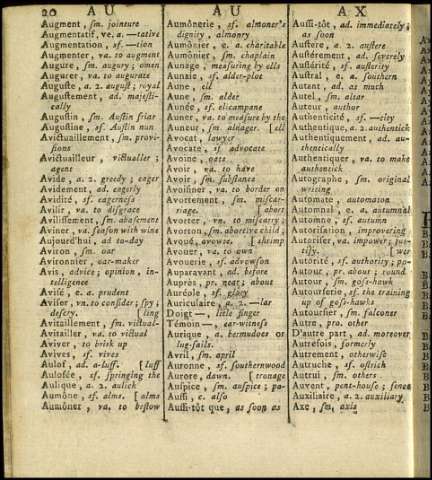 20 A U
Augment, sm. jointure
Augmentatif, ve. a. —tative
Augmentation, sf. —tion
Augmenter, va. to augment
Augure, sm. augury; omen
Augurer, va. to augurate
Auguste, a. 2. august; royal
Augustement, ad. majesti-
cally
Augustin, sm. Austin friar
Augustine, sf. Austin nun
Avictuaillement, sm. provi-
sions
Avictuailleur, victualler;
agent
Avide, a. 2. greedy; eager
Avidement, ad. eagerly
Avidité, sf. eagerness
Avilir, va. to disgrace
Avilissement, sm. abasement
Aviner, va. season with wine
Aujourd'hui, ad to-day
Aviron, sm. oar
Avironnier, oar-maker
Avis, advice; opinion, in-
telligence
Avisé, e. a. prudent
Aviser, va. to consider; spy;
descry. [ling
Avitaillement, sm. victual-
Avitailler, va. to victual
Aviver, to brisk up
Avives, sf. vives
Aulof, ad. a-luff. [luff
Aulofée, sf. springing the
Aulique, a. 2. aulick
Aumône, sf. alms. [alms
Aumôner, va. to bestow
A U
Aumônerie, sf. almoner's
dignity, almonry
Aumônier, e. a. charitable
Aumônier, sm. chaplain
Aunage, measuring by ells
Aunaie, sf. alder-plot
Aune, ell
Aune, sm. alder
Aunée, sf. elicampane
Auner, va. to measure by the
Auneur, sm. alnager. [ell
Avocat, lawyer
Avocate, sf. advocate
Avoine, oats
Avoir, va. to have
Avoir, sm. substance
Avoisiner, va. to border on
Avortement, sm. miscar-
riage. [abort
Avorter, vn. to miscarry;
Avorton, sm. abortive child;
Avoué, avowee. [shrimp
Avouer, va. to own
Avouerie, sf. advowson
Auparavant, ad. before
Auprès, pr. near; about
Auréole, sf. glory
Auriculaire, a. 2. —lar
Doigt—, little finger
Témoin—, ear-witness
Aurique, a. bermudoes or
lug-sails.
Avril, sm. april
Auronne, sf. southernwood
Aurore, dawn. [tronage
Auspice, sm. auspice; pa-
Aussi, c. also
Aussi-tôt que, as soon as
A X
Aussi-tôt, ad. immediately;
as soon
Austere, a. 2. austere
Austérement, ad. severely
Austérité, sf. austerity
Austral, e. a. southern
Autant, ad. as much
Autel, sm. altar
Auteur, author
Authenticité, sf. —city
Authentique, a. 2. authentick
Authentiquement, ad. au-
thentically
Authentiquer, va. to make
authentick
Autographe, sm. original
writing
Automate, automaton
Automnal, e, a, autumnal
Automne, sf. autumn
Autorisation, improvering
Autoriser, va. impower; jus-
tify. [wer
Autorité, sf. authority; po-
Autour, pr. about; round
Autour, sm. goss-hawk
Autourserie, sf. the training
up of goss-hawks
Autoursier, sm. falconer
Autre, pro. other
D'autre part, ad. moreover
Autrefois, formerly
Autrement, otherwise
Autruche, sf. ostrich
Autrui, sm. others
Auvent, pent-house; sence
Auxiliaire, a 2. auxiliary
Axe, sm, axis